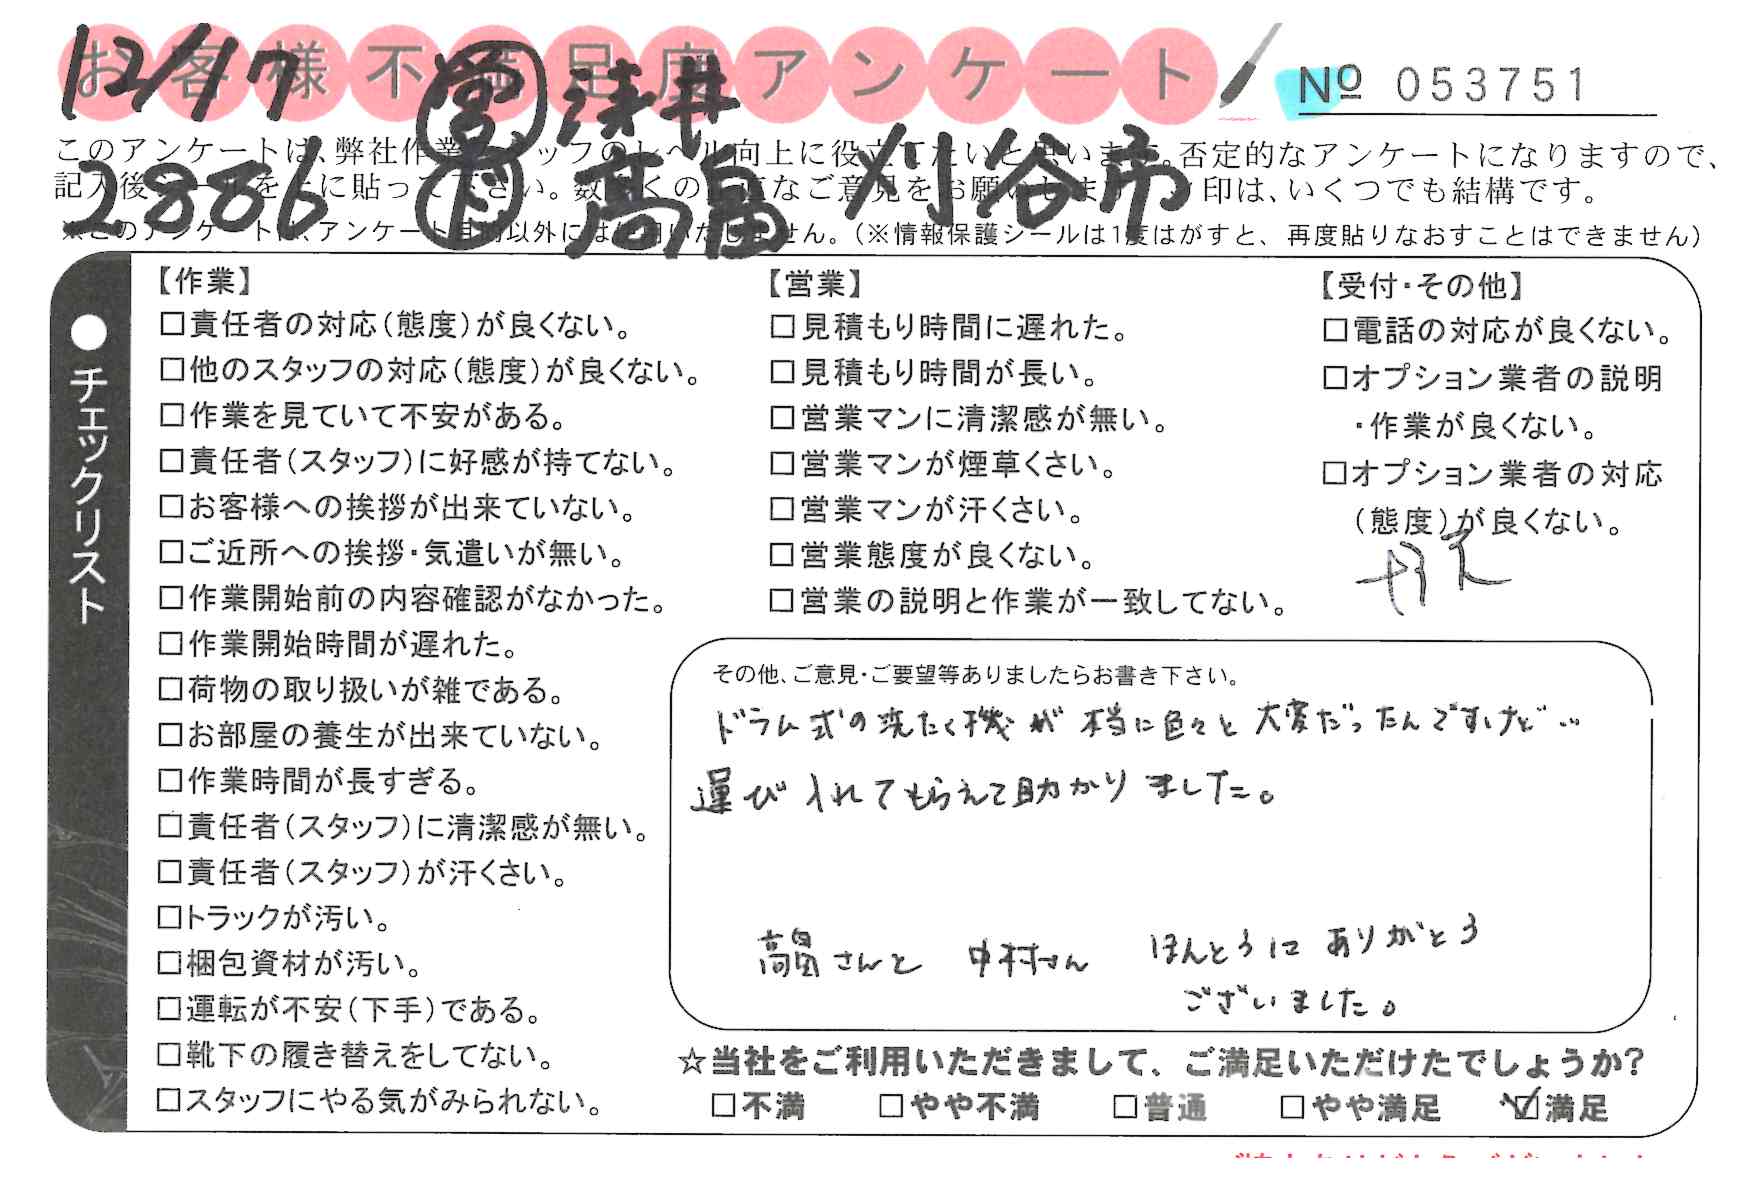 お客様不満足度アンケート
12/17 営 浅井
№ 053751
このアンケートは、弊社作業スタッフのレベル向上に役立てたいと思います。否定的なアンケートになりますので、
記入後シールを上に貼って下さい。数多くの正直なご意見をお願いします。レ印は、いくつでも結構です。
2886 作 高畠 刈谷市
※このアンケートは、アンケート目的以外には使用いたしません。(※情報保護シールは1度はがすと、再度貼りなおすことはできません)
●チェックリスト
【作業】
□責任者の対応(態度)が良くない。
□他のスタッフの対応(態度)が良くない。
□作業を見ていて不安がある。
□責任者(スタッフ)に好感が持てない。
□お客様への挨拶が出来ていない。
□ご近所への挨拶・気遣いが無い。
□作業開始前の内容確認がなかった。
□作業開始時間が遅れた。
□荷物の取り扱いが雑である。
□お部屋の養生が出来ていない。
□作業時間が長すぎる。
□責任者(スタッフ)に清潔感が無い。
□責任者(スタッフ)が汗くさい。
□トラックが汚い。
□梱包資材が汚い。
□運転が不安(下手)である。
□靴下の履き替えをしてない。
□スタッフにやる気がみられない。
【営業】
□見積もり時間に遅れた。
□見積もり時間が長い。
□営業マンに清潔感が無い。
□営業マンが煙草くさい。
□営業マンが汗くさい。
□営業態度が良くない。
□営業の説明と作業が一致してない。
【受付・その他】
□電話の対応が良くない。
□オプション業者の説明
・作業が良くない。
□オプション業者の対応
(態度)が良くない。
その他、ご意見・ご要望等ありましたらお書き下さい。
ドラム式の洗たく機が本当に色々と大変だったんですけど…
運び入れてもらえて助かりました。
高畠さんと 中村さん ほんとうに ありがとう
ございました。
☆当社をご利用いただきまして、ご満足いただけたでしょうか?
□不満 □やや不満 □普通 □やや満足 ☑満足